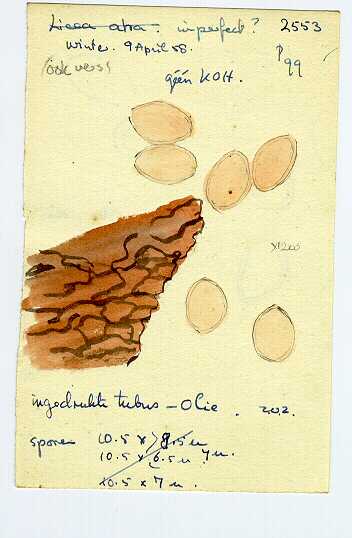 Licea atra. imperfect? 2553
Winter. 9 April 58.
P99
(ook vers)
géén KOH.
x1200
ingedrukte tubus – Olie. 202.
sporen 10.5 x 8.5 u
10.5 x 6.5 u. 7 u.
10.5 x 7 u.